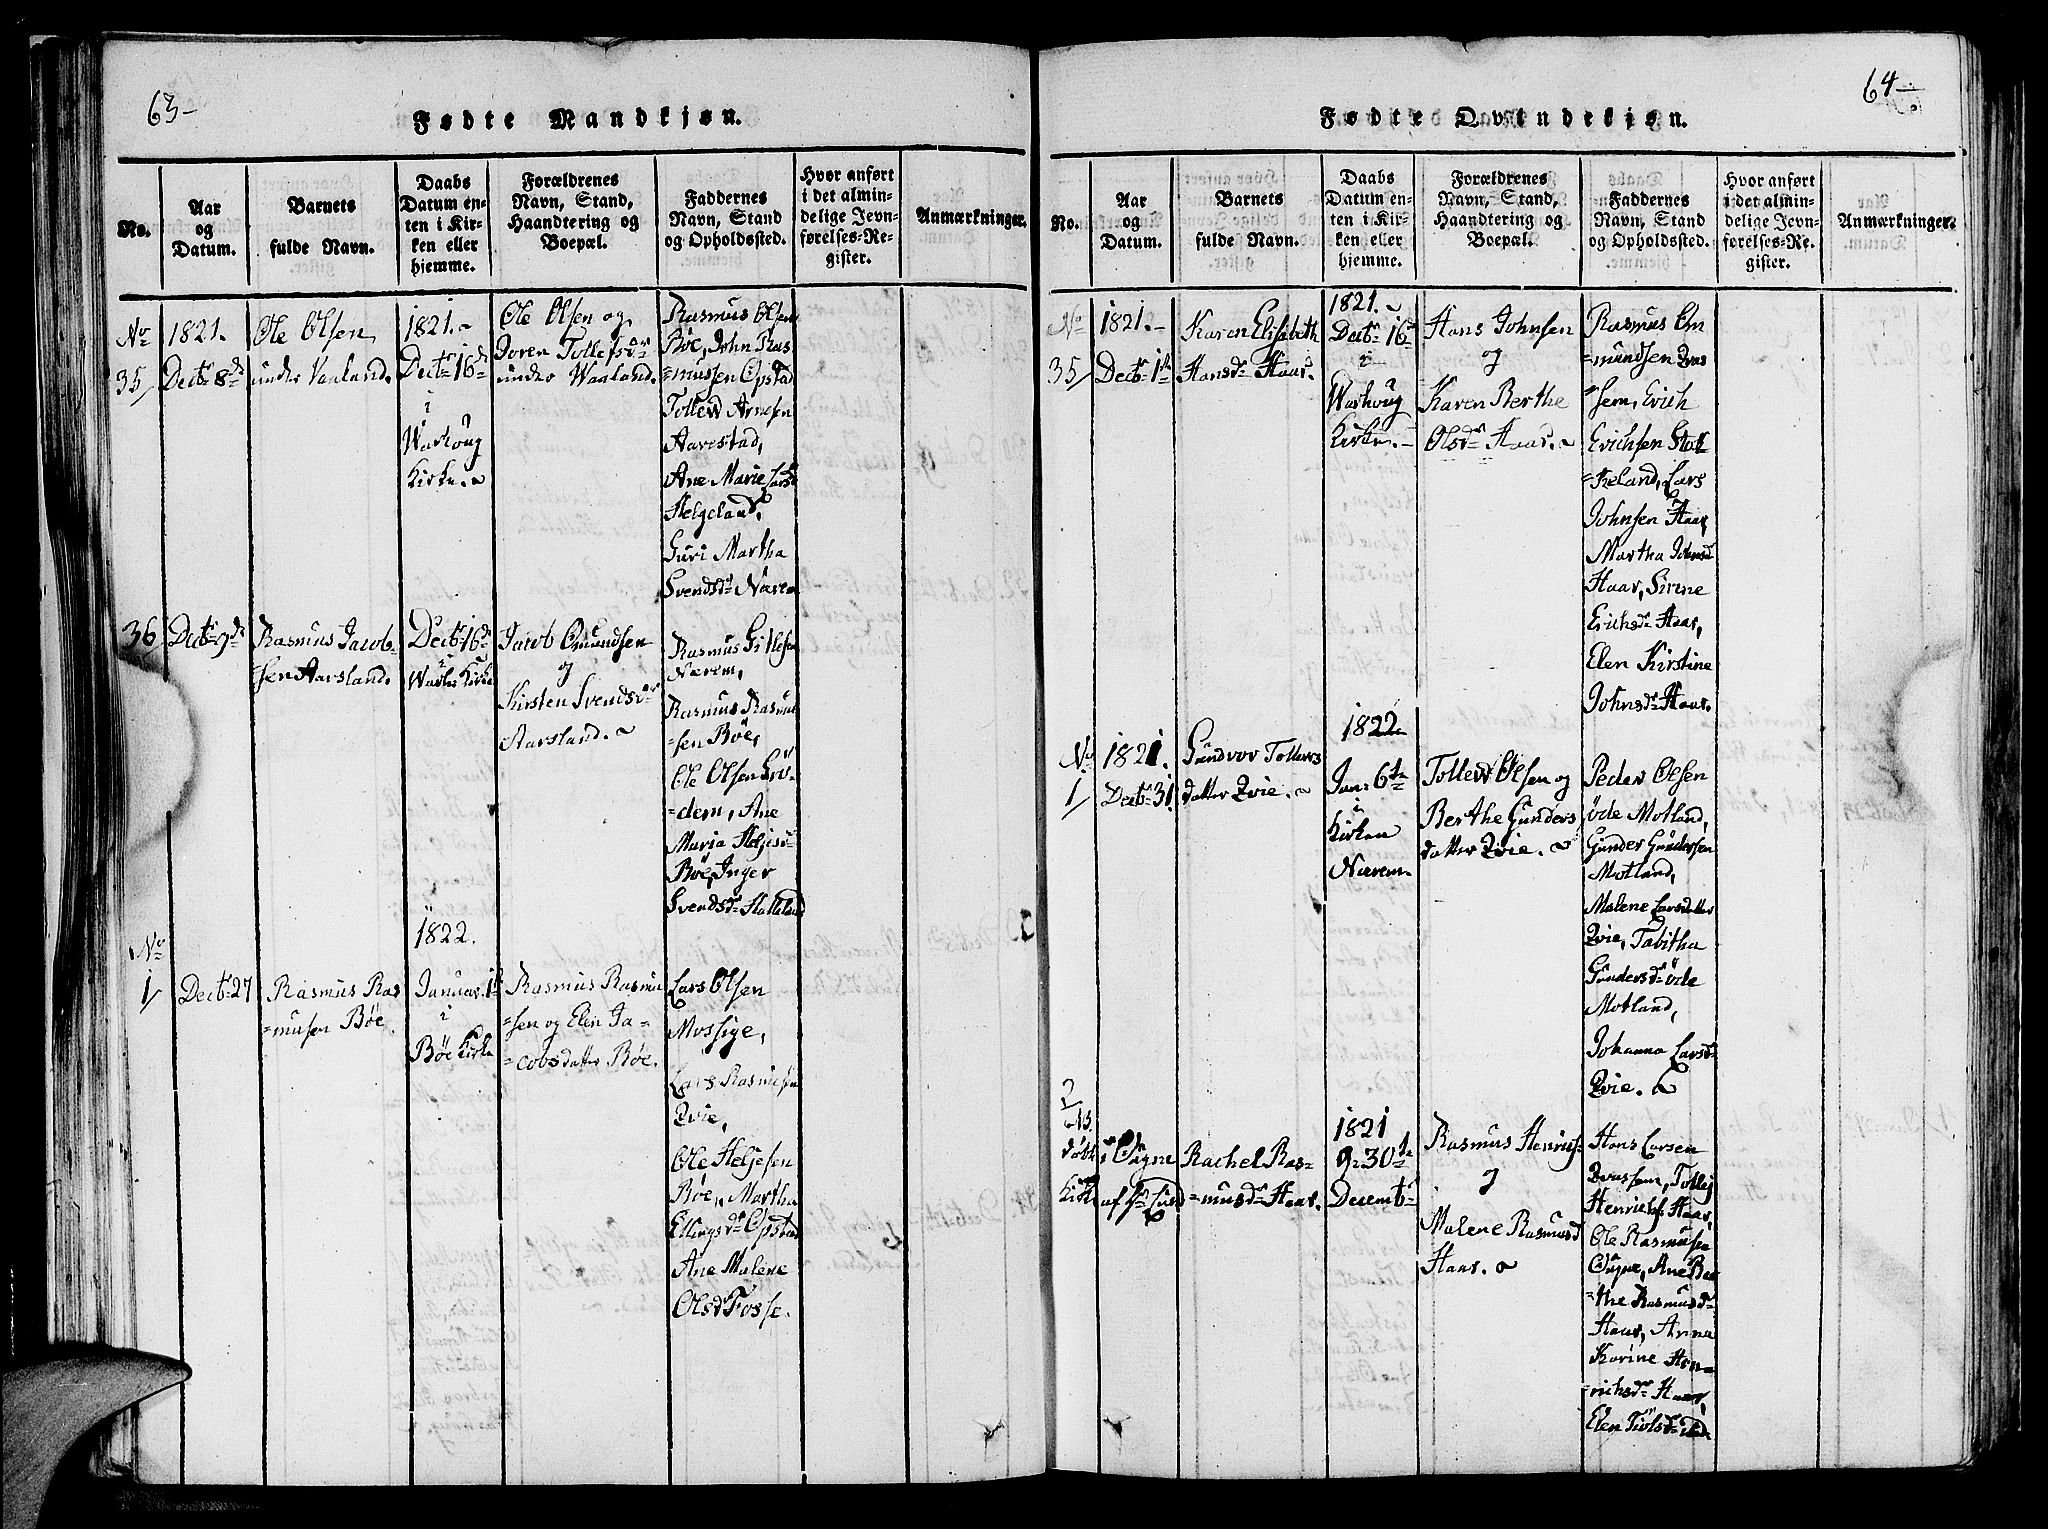 63-
Fødte Mandkjøn.
No.
Aar
og
Datum.
Barnets
fulde Navn.
Daabs
Datum en-
ten i Kir-
ken eller
hjemme.
Forældrenes
Navn, Stand,
Haandtering og
Boepæl.
Faddernes
Navn, Stand
og Opholdssted.
Hvor anført
i det almin-
delige Jevn-
førelses-Re-
gister.
Anmærkninger.
No
35/
1821.
Decbr 8de
Ole Olsen
under Varland.
1821.
Decbr 16de
i
Warhoug
Kirke.
Ole Olsen og
Joren Tollefsdr
under Warland.
Rasmus Olsen
Bøe, John Ras
=mussen Opstad
Tollew Arnesen
Aarestad,
Ane Marie Larsd
Helgeland,
Guri Martha
Svendsdr Nærem
36
Decbr 9de
Rasmus Jacob-
sen Aarsland.
Decbr 16de
i
Warh. Kirke
Jacob Omundsen
og
Kirsten Svendsdr
Aarsland.
Rasmus Gitlesen
Nærem,
Rasmus Rasmus
=sen Bøe,
Ole Olsen Grö-
=dem, Ane
Maria Heljesdr
Bøe, Inger
Svendsdr Hatteland
No
1/
Decbr 27
Rasmus Ras
=musen Bøe.
1822.
Januar. 1st
i
Bøe Kirke
Rasmus Rasmu
=sen og Elen Ja-
=cobsdatter Bøe.
Lars Olsen
Mossige,
Lars Rasmusen
Qvie,
Ole Heljesen
Bøe, Martha
Ellingsdr Opstad
Ane Malene
Olsdr Fosse.
64-
Fødte Qvindekjøn.
No.
Aar
og
Datum.
Barnets
fulde Navn.
Daabs
Datum en-
ten i Kir-
ken eller
hjemme.
Forældrenes
Navn, Stand,
Haandtering og
Boepæl.
Faddernes
Navn, Stand
og Opholdssted.
Hvor anført
i det almin-
delige Jevn-
førelses-Re-
gister.
Anmærkninger.
No
35/
1821.
Decbr 1ste
Karen Elisabeth
Hansdr Haar.
1821.
Decbr 16de
i
Warhoug
Kirke.
Hans Johnsen
og
Karen Berthe
Olsdr Haar.
Rasmus Om
=mundsen Qvas
=sem, Erich
Erichsen Stok
=keland, Lars
Johnsen Haar,
Martha Johnsdr
Haar, Sirene
Erichsdr Haar,
Elen Kirstine
Johnsdr Haar.
No
1/
1821.
Decbr 31
Gundvor Tollews
datter Qvie.
1822
Jan. 6te
i
Kirken
Nærem.
Tollew Olsen og
Berthe Gunders
datter Qvie.
Peder Olsen
öde Motland,
Gunder Gundersen
Motland,
Malene Larsdatter
Qvie, Tabitha
Gundersdr öde
Motland,
Johanna Larsdr
Qvie.
2
NB.
døbt i Ougne
Kirke af Hr Lund
Rachel Ras-
=musdr Haar.
1821
9-30te
Decembr
Rasmus Henrichs.
og
Malene Rasmusd
Haar.
Hans Larsen
Qvassem, Tollej
Henrichs. Haar,
Ole Rasmusen
Ougne, Ane Ber
=the Rasmusdr
Haar, Anna
Karine Hen
=richsdr Haar,
Elen